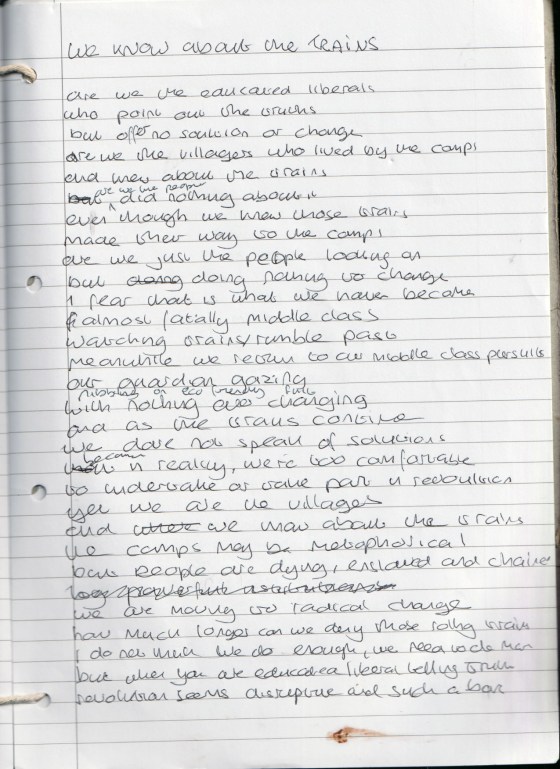 We know about the TRAINS
are we the educated liberals
who point out the truths
but offer no soulution or change
are we the villagers who lived by the camps
and knew about the trains
are we the people
but did nothing about it
even though we knew those trains
made their way to the camps
are we just the people looking on
but doing doing nothing to change
I fear that is what we have become
almost fatally middle class
watching trains rumble past
meanwhile we return to our middle class pursuits
our guardian gazing
nibbling on eco friendly
with nothing ever changing
and as the trains continue
we dare not speak of solutions
because
in reality, we're too comfortable
to undertake or take part in revolution
yet we are the villages
and we know about the trains
the camps may be metaphorical
but people are dying, enslaved and chained
we are moving to radical change
how much longer can we deny those rolling trains
I do not think we do enough, we need to do more
but when you are educated liberal telling truth
revolution seems disruptive and such a bore